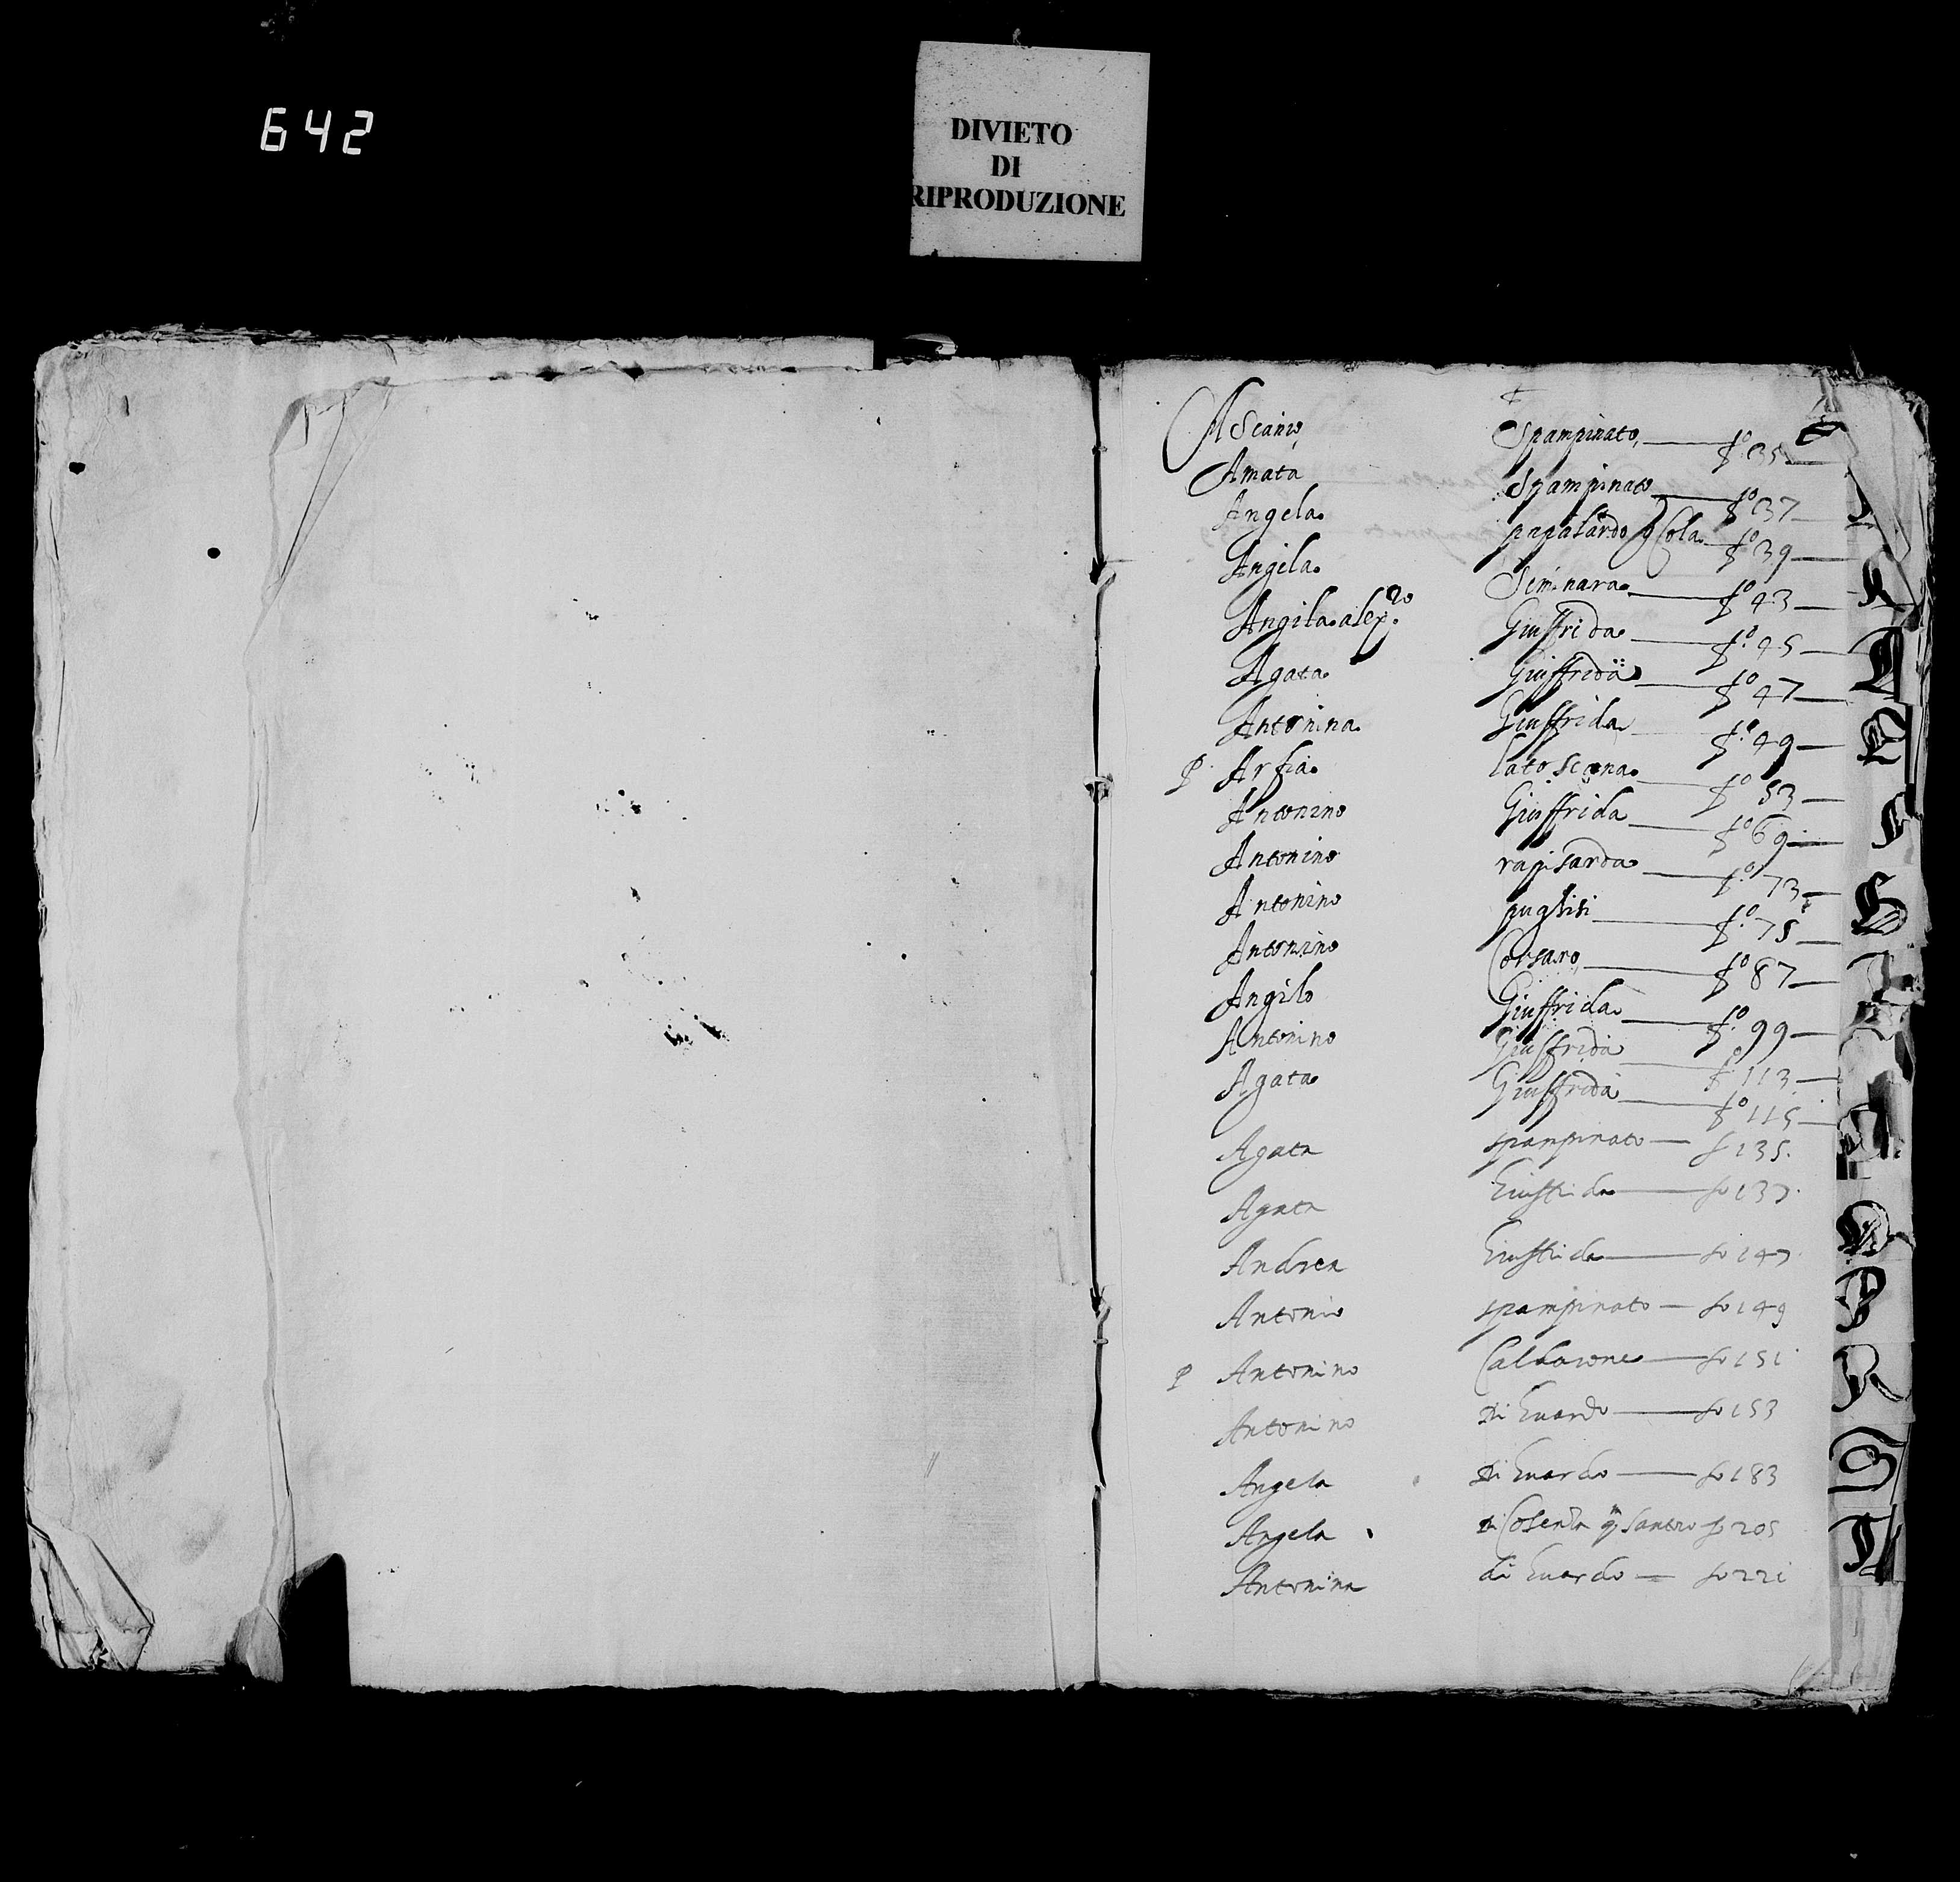 642
DIVIETO
DI
RIPRODUZIONE
Ascanio Spampinato fo 35
Amata Spampinato fo 37
Angela papalardo q Cola fo 39
Angila Seminara fo 43
Angila alex.ro Giuffrida fo 45
Agata Giuffrida fo 47
Antonina Giuffrida fo 49
Arfia la toscana fo 53
Antonino Giuffrida fo 69
Antonino rapisarda fo 73
Antonino puglisi fo 75
Antonino Corsaro fo 87
Angilo Giuffrida fo 99
Antonino Giuffrida fo 113
Agata Giuffrida fo 115
Agata spampinato fo 135
Agata Giuffrida fo 137
Andrea Giuffrida fo 147
Antonio spampinato fo 149
P Antonino Calbarone fo 151
Antonino di Euardo fo 153
Angela di Euardo fo 183
Angela di santro fo 205
Antonina di Euardo fo 221